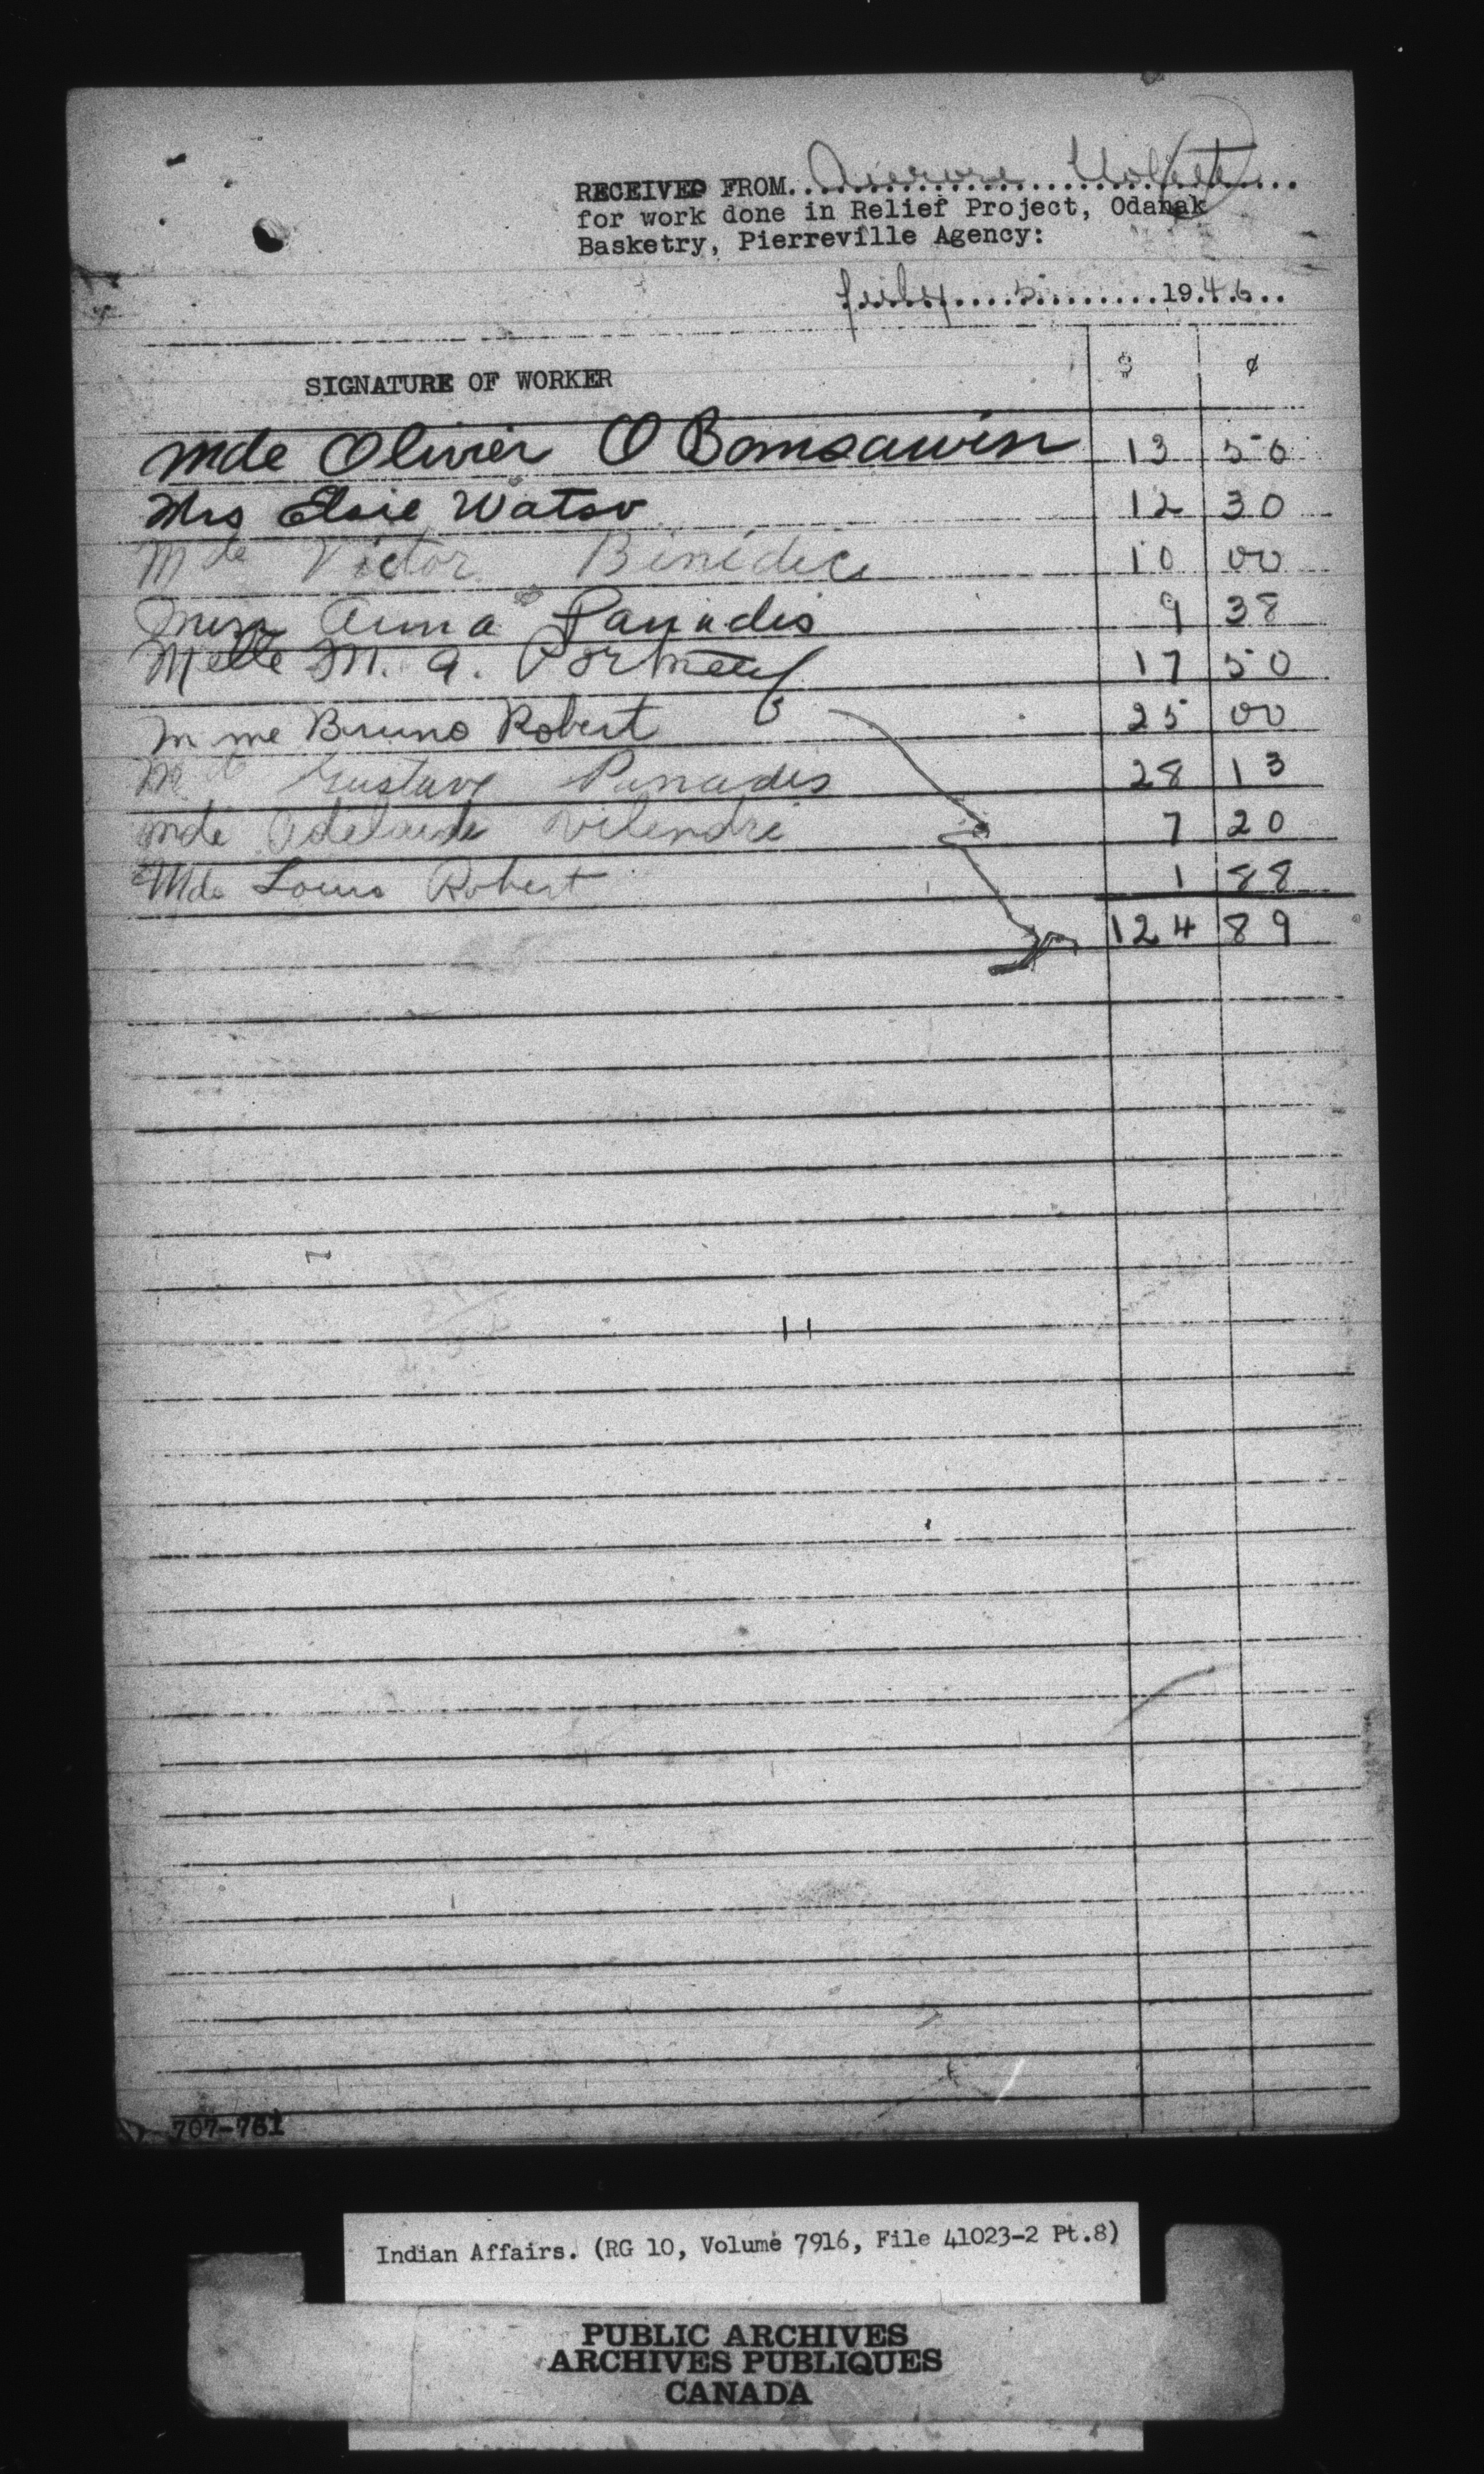 RECEIVED FROM. Aurore
for work done in Relief Project, Odanak
Basketry, Pierreville Agency:
July 5 1946
SIGNATURE OF WORKER $ ¢
Mde Olivier OBomsawin 13 50
Mrs Elsie Watso 12 30
Mde Victor Bénédict 10 00
Miss Anna Panadis 9 38
Melle M. A. 17 50
Mme Bruno Robert 25 00
Mde Gustave Panadis 28 13
Mde Adelaide 7 20
Mde Louis Robert 1 88
124 89
707-761
Indian Affairs. (RG 10, Volume 7916, File 41023-2 Pt.8)
PUBLIC ARCHIVES
ARCHIVES PUBLIQUES
CANADA